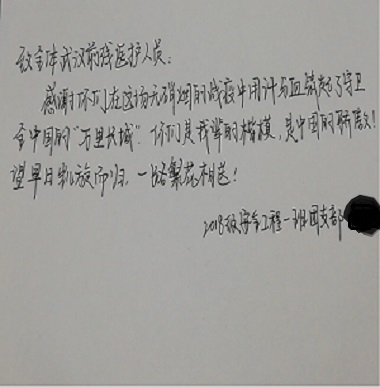 致全体武汉前线医护人员:
感谢你们在这场无硝烟的战疫中用汗与血筑起了守卫
全中国的“万里长城”。你们是我辈的楷模,是中国的骄傲!
望早日凯旋而归,一路繁花相送!
2018级安全工程一班团支部